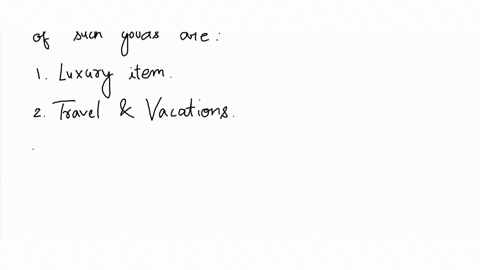 of such goods are:
1. Luxury item.
2. Travel & Vacations.